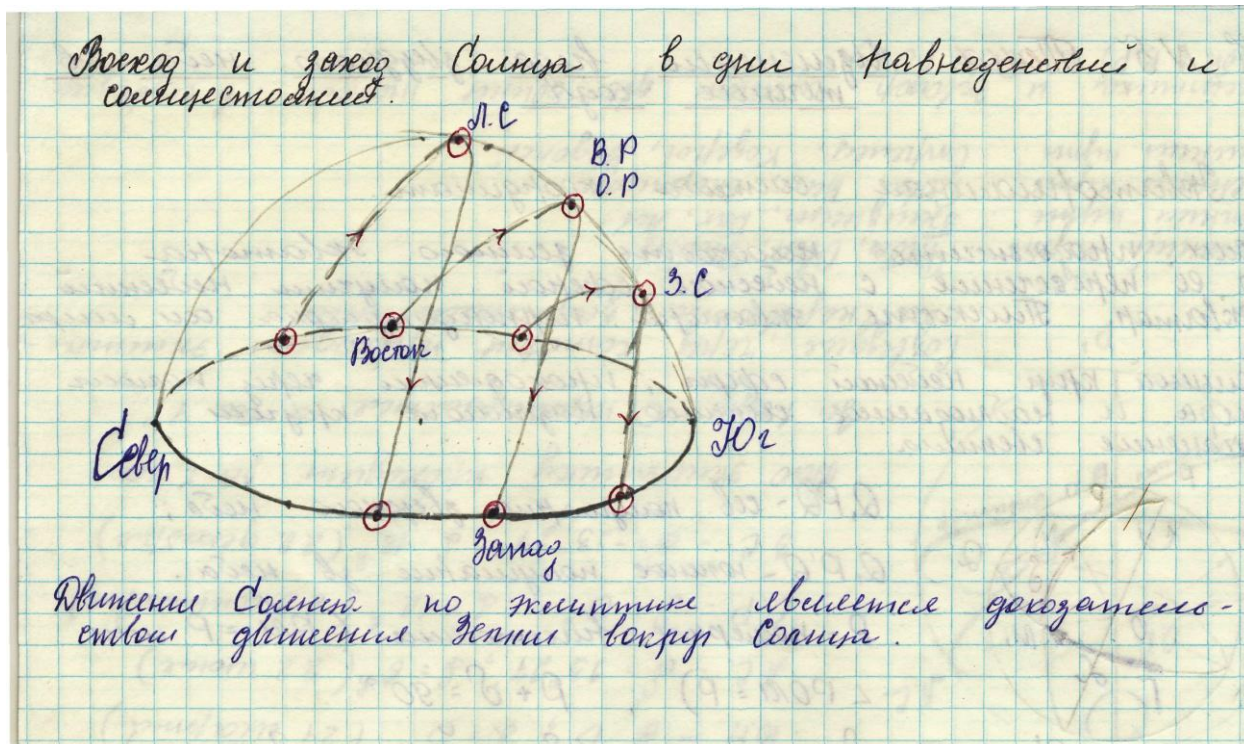 Восход и заход Солнца в дни равноденствий и
солнцестояния.
Л.С
В.Р
О.Р
З.С
Восток
Север
Юг
Запад
Движение Солнца по эклиптике является доказатель-
ством движения Земли вокруг Солнца.